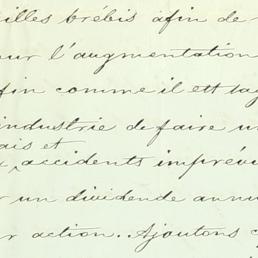 illes brébis afin de
our l'augmentation
fin comme il est
industrie de faire un
ais et
accidents imprévu
un dividende annu
r action.. Ajoutons